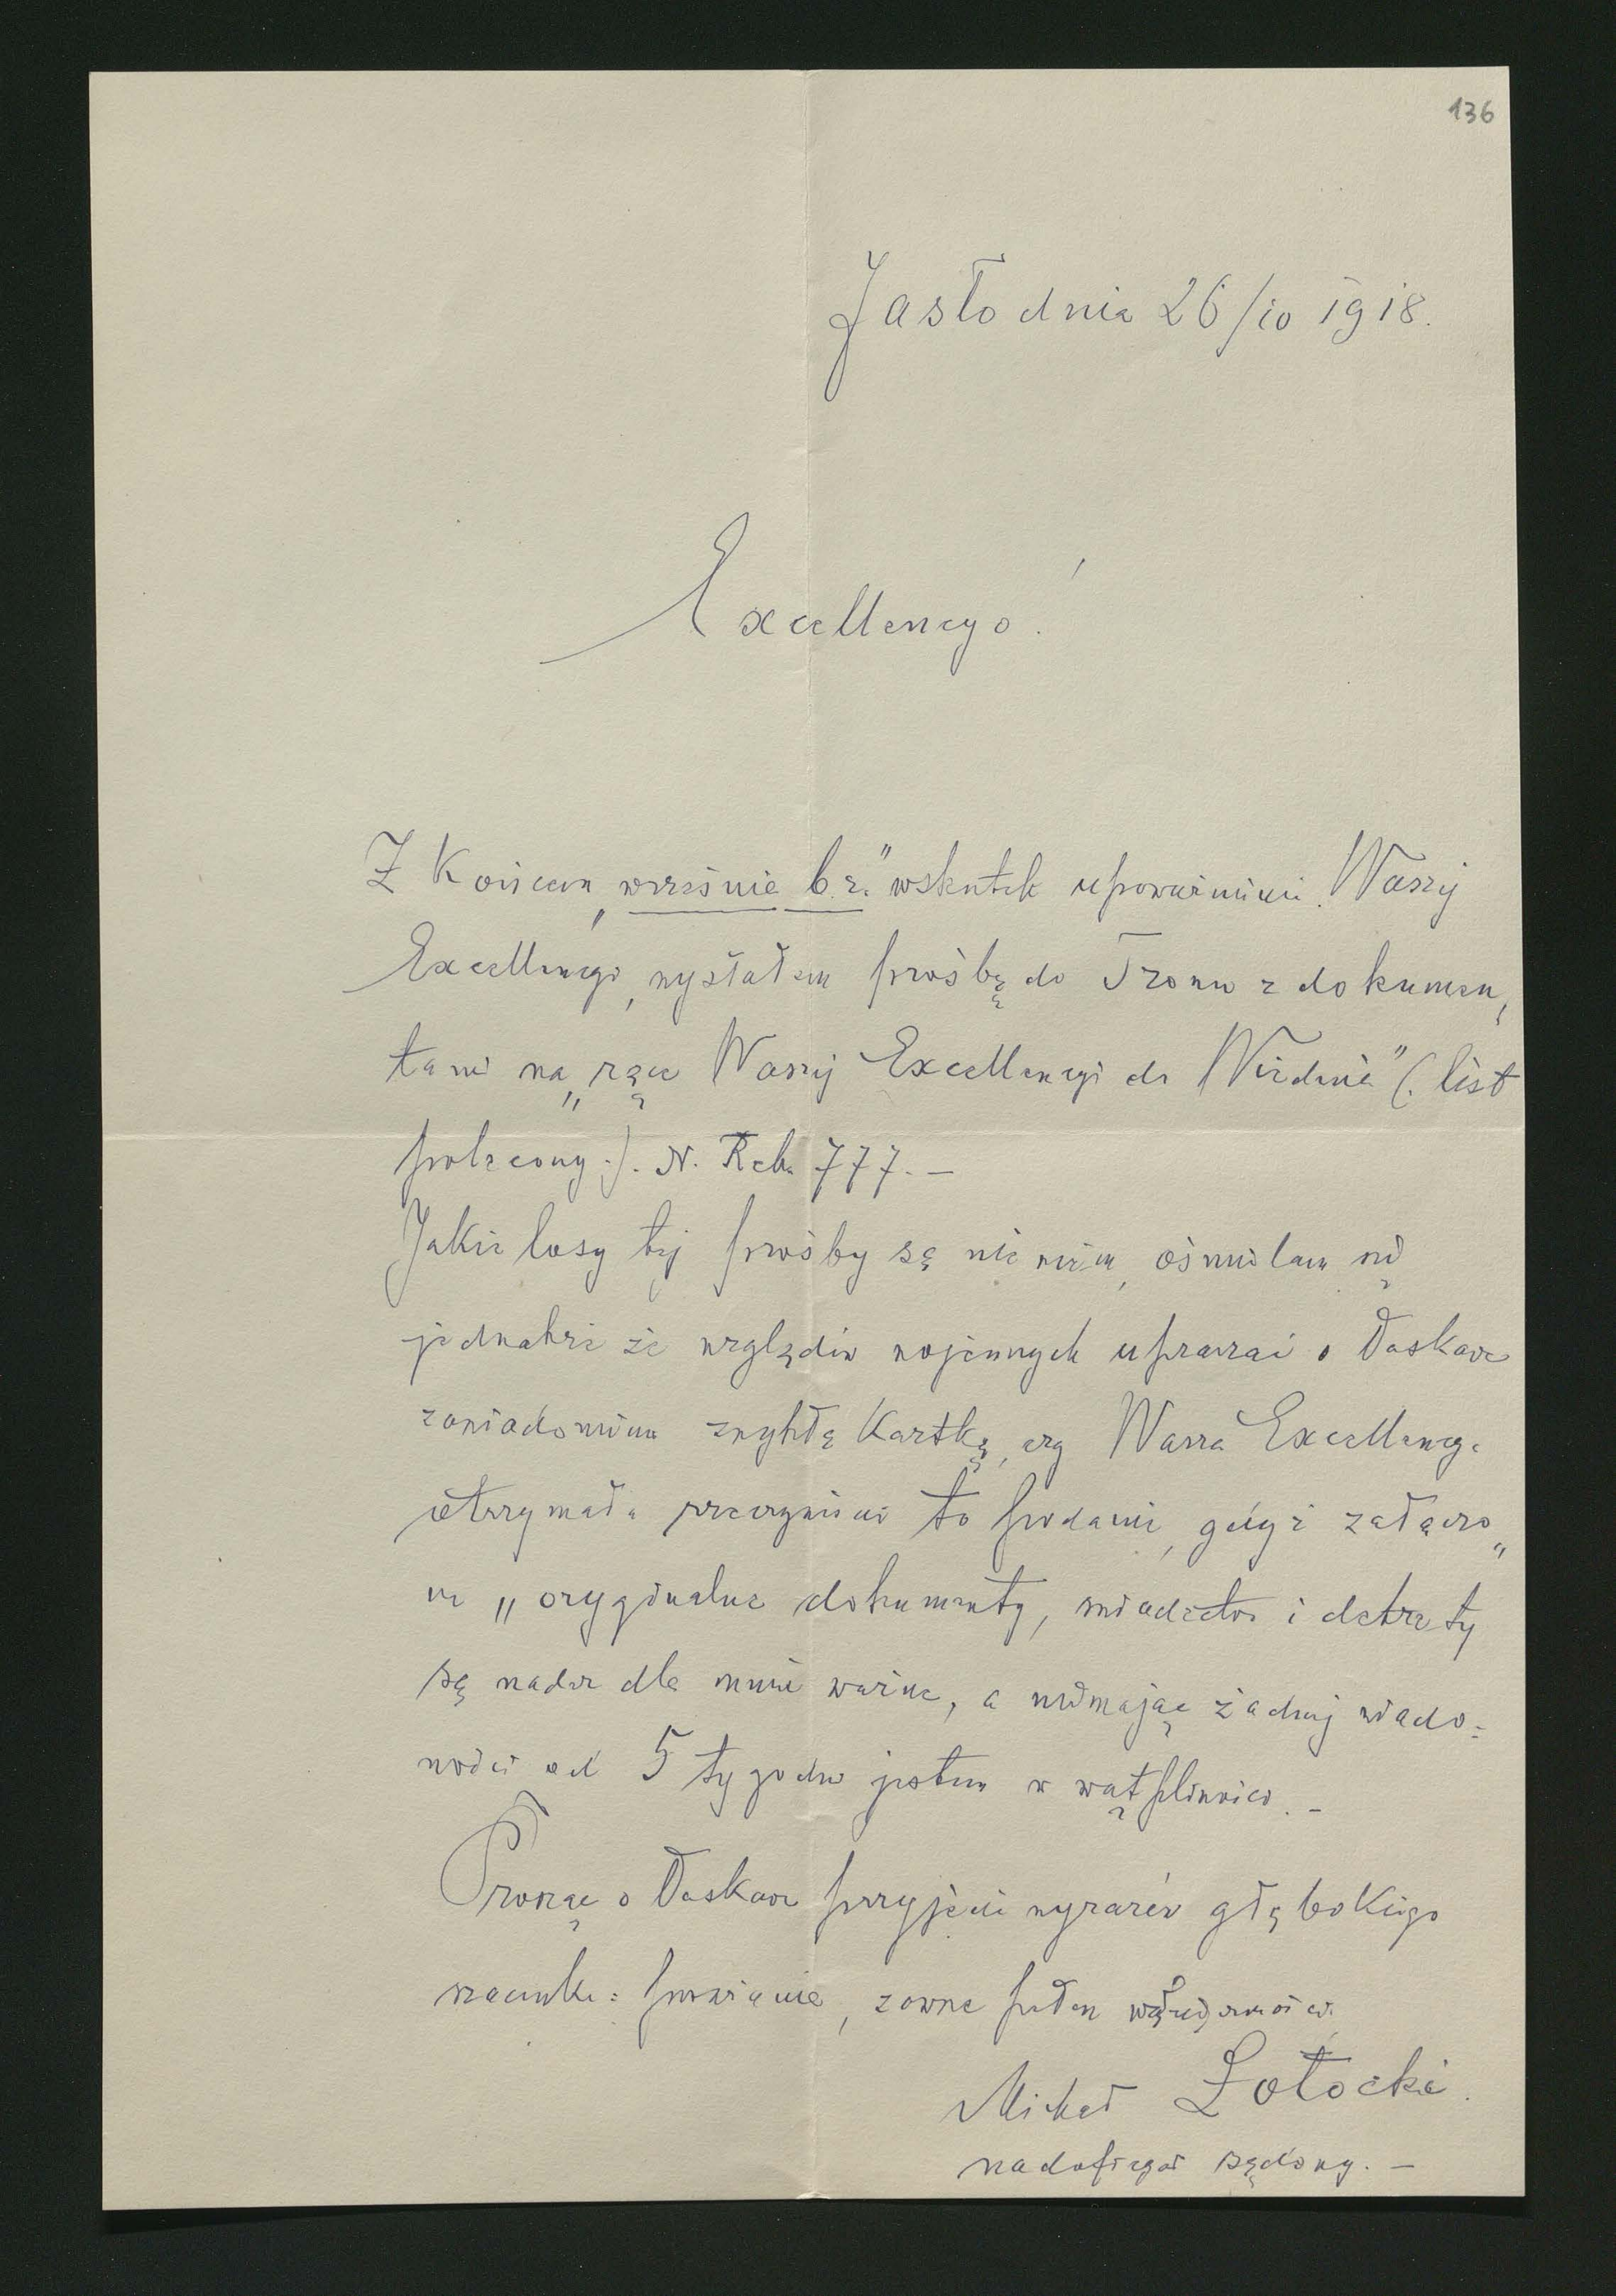 136
Jasło dnia 26/10 1918.
Excellencyo!
Z końcem „września b.r." wskutek upoważnienia Waszej
Excellencyi, wysłałem prośbę do Tronu z dokumen„
tami na „ręce Waszej Excellencyi do Wiednia" (: list
polecony :). N. Rek. 777. —
Jakie losy tej prośby są nie wiem, ośmielam się
jednakże ze względów wojennych upraszać o łaskawe
zawiadomienie zwykłą kartką, czy Wasza Excellencya
otrzymała rzeczywiście to podanie, gdyż załączo„
ne „oryginalne dokumenty, świadectwa i dekrety
są nader dla mnie ważne, a niemając żadnej wiado=
mości od 5 tygodni jestem w wątpliwości. —
Prosząc o łaskawe przyjęcie wyrazów głębokiego
szacunku i poważania, zawsze pełen wdzięczności
Michał Łotocki.
nadoficyał sądowy. —